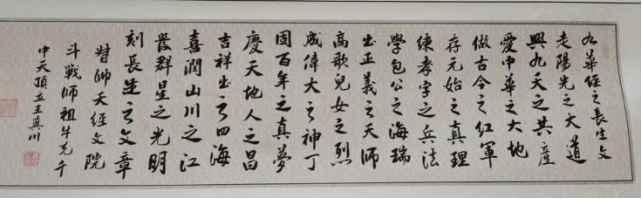 九華經之長生文
走陽光之大道
興九天之共產
愛中華之大地
做古今之紅軍
存元始之真理
練孝字之兵法
學包公之海瑞
出正義之天師
高歌兒女之烈
成偉大之神丁
固百年之真夢
慶天地人之昌
吉祥出了四海
喜潤山川之江
發群星之光明
刻長生之文章
替帥天經文院
斗戰師祖牛克千
中天頂立王冀川